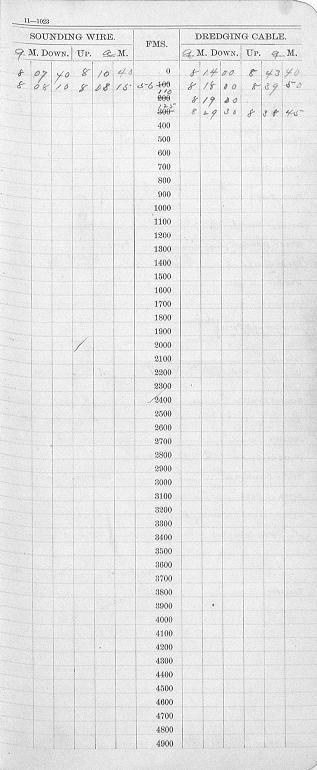 11—1023
SOUNDING WIRE. FMS. DREDGING CABLE.
a M. DOWN. UP. a M. a M. DOWN. UP. a M.
8 07 40 8 10 40 0 8 14 00 8 43 40
8 08 10 8 08 15 56 100 8 18 00 8 39 50
110
200 8 19 00
125
300 8 29 30 8 38 45
400
500
600
700
800
900
1000
1100
1200
1300
1400
1500
1600
1700
1800
1900
2000
2100
2200
2300
2400
2500
2600
2700
2800
2900
3000
3100
3200
3300
3400
3500
3600
3700
3800
3900
4000
4100
4200
4300
4400
4500
4600
4700
4800
4900